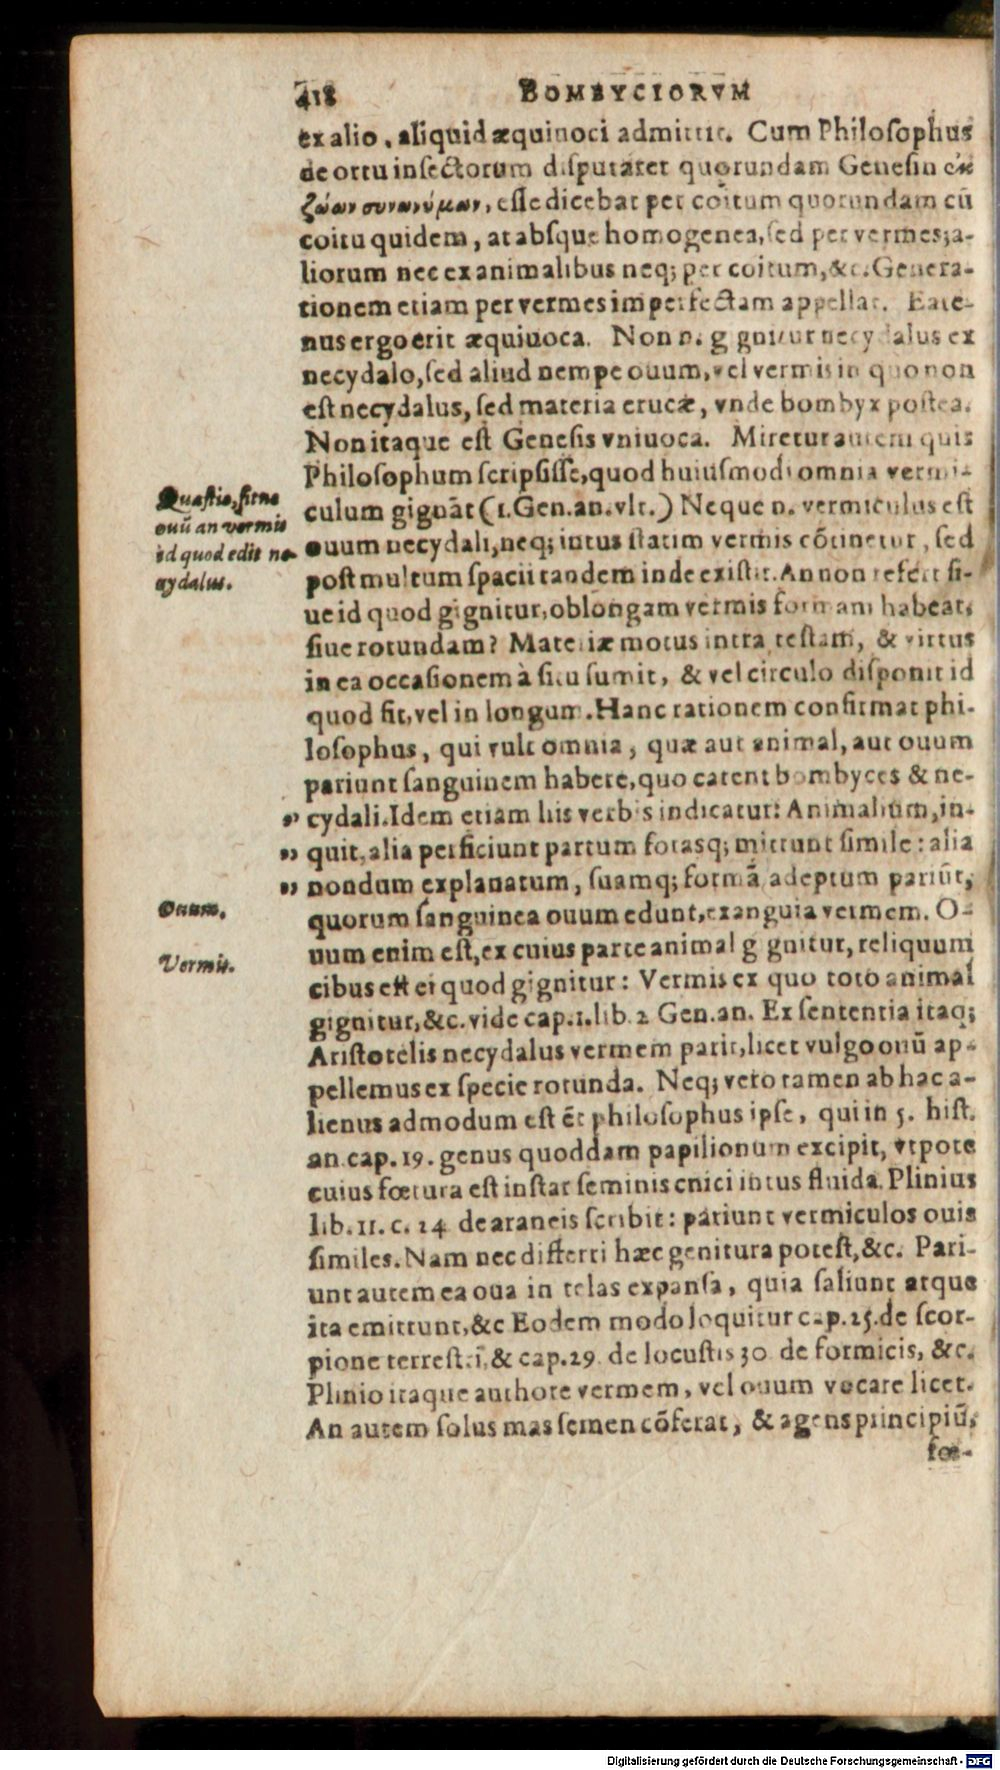 418 BOMBYCIORVM
ex alio, aliquid æquiuoci admittit. Cum Philoſophus
de ortu inſectorum diſputaret quorundam Geneſin ἐκ
ζώων συνωνύμων, eſſe dicebat per coitum quorundam cũ
coitu quidem, at abſque homogenea, ſed per vermes; a-
liorum nec ex animalibus neq; per coitum, &c. Genera-
tionem etiam per vermes imperfectam appellat. Eate-
nus ergo erit æquiuoca. Non n. gignitur necydalus ex
necydalo, ſed aliud nempe ouum, vel vermis in quo non
eſt necydalus, ſed materia erucæ, vnde bombyx poſtea.
Non itaque eſt Geneſis vniuoca. Miretur autem quis
Philoſophum ſcripſiſſe, quod huiuſmodi omnia vermi-
Quæſtio, ſitne
ouũ an vermis
id quod edit ne-
cydalus.
culum gignãt (1. Gen. an. vlt.) Neque n. vermiculus eſt
ouum necydali, neq; intus ſtatim vermis cõtinetur, ſed
poſt multum ſpacii tandem inde exiſtit. An non refert ſi-
ue id quod gignitur, oblongam vermis formam habeat,
ſiue rotundam? Materiæ motus intra teſtam, & virtus
in ea occaſionem à ſitu ſumit, & vel circulo diſponit id
quod fit, vel in longum. Hanc rationem confirmat phi-
loſophus, qui vult omnia, quæ aut animal, aut ouum
pariunt ſanguinem habere, quo carent bombyces & ne-
„ cydali. Idem etiam his verbis indicatur: Animalium, in-
„ quit, alia perficiunt partum forasq; mittunt ſimile: alia
„ nondum explanatum, ſuamq; formã adeptum pariũt,
Ouum.
quorum ſanguinea ouum edunt, exanguia vermem. O-
uum enim eſt, ex cuius parte animal gignitur, reliquum
Vermis.
cibus eſt ei quod gignitur: Vermis ex quo toto animal
gignitur, &c. vide cap. 1. lib. 2 Gen. an. Ex ſententia itaq;
Ariſtotelis necydalus vermem parit, licet vulgo ouũ ap-
pellemus ex ſpecie rotunda. Neq; vero tamen ab hac a-
lienus admodum eſt & philoſophus ipſe, qui in 5. hiſt.
an. cap. 19. genus quoddam papilionum excipit, vtpote
cuius fœtura eſt inſtar ſeminis cnici intus fluida. Plinius
lib. 11. c. 24 de araneis ſcribit: pariunt vermiculos ouis
ſimiles. Nam nec differri hæc genitura poteſt, &c. Pari-
unt autem ea oua in telas expanſa, quia ſaliunt atque
ita emittunt, &c Eodem modo loquitur cap. 25. de ſcor-
pione terreſtri, & cap. 29. de locuſtis 30 de formicis, &c.
Plinio itaque authore vermem, vel ouum vocare licet.
An autem ſolus mas ſemen cõferat, & agens principiũ,
fœ-
Digitalisierung gefördert durch die Deutsche Forschungsgemeinschaft - DFG